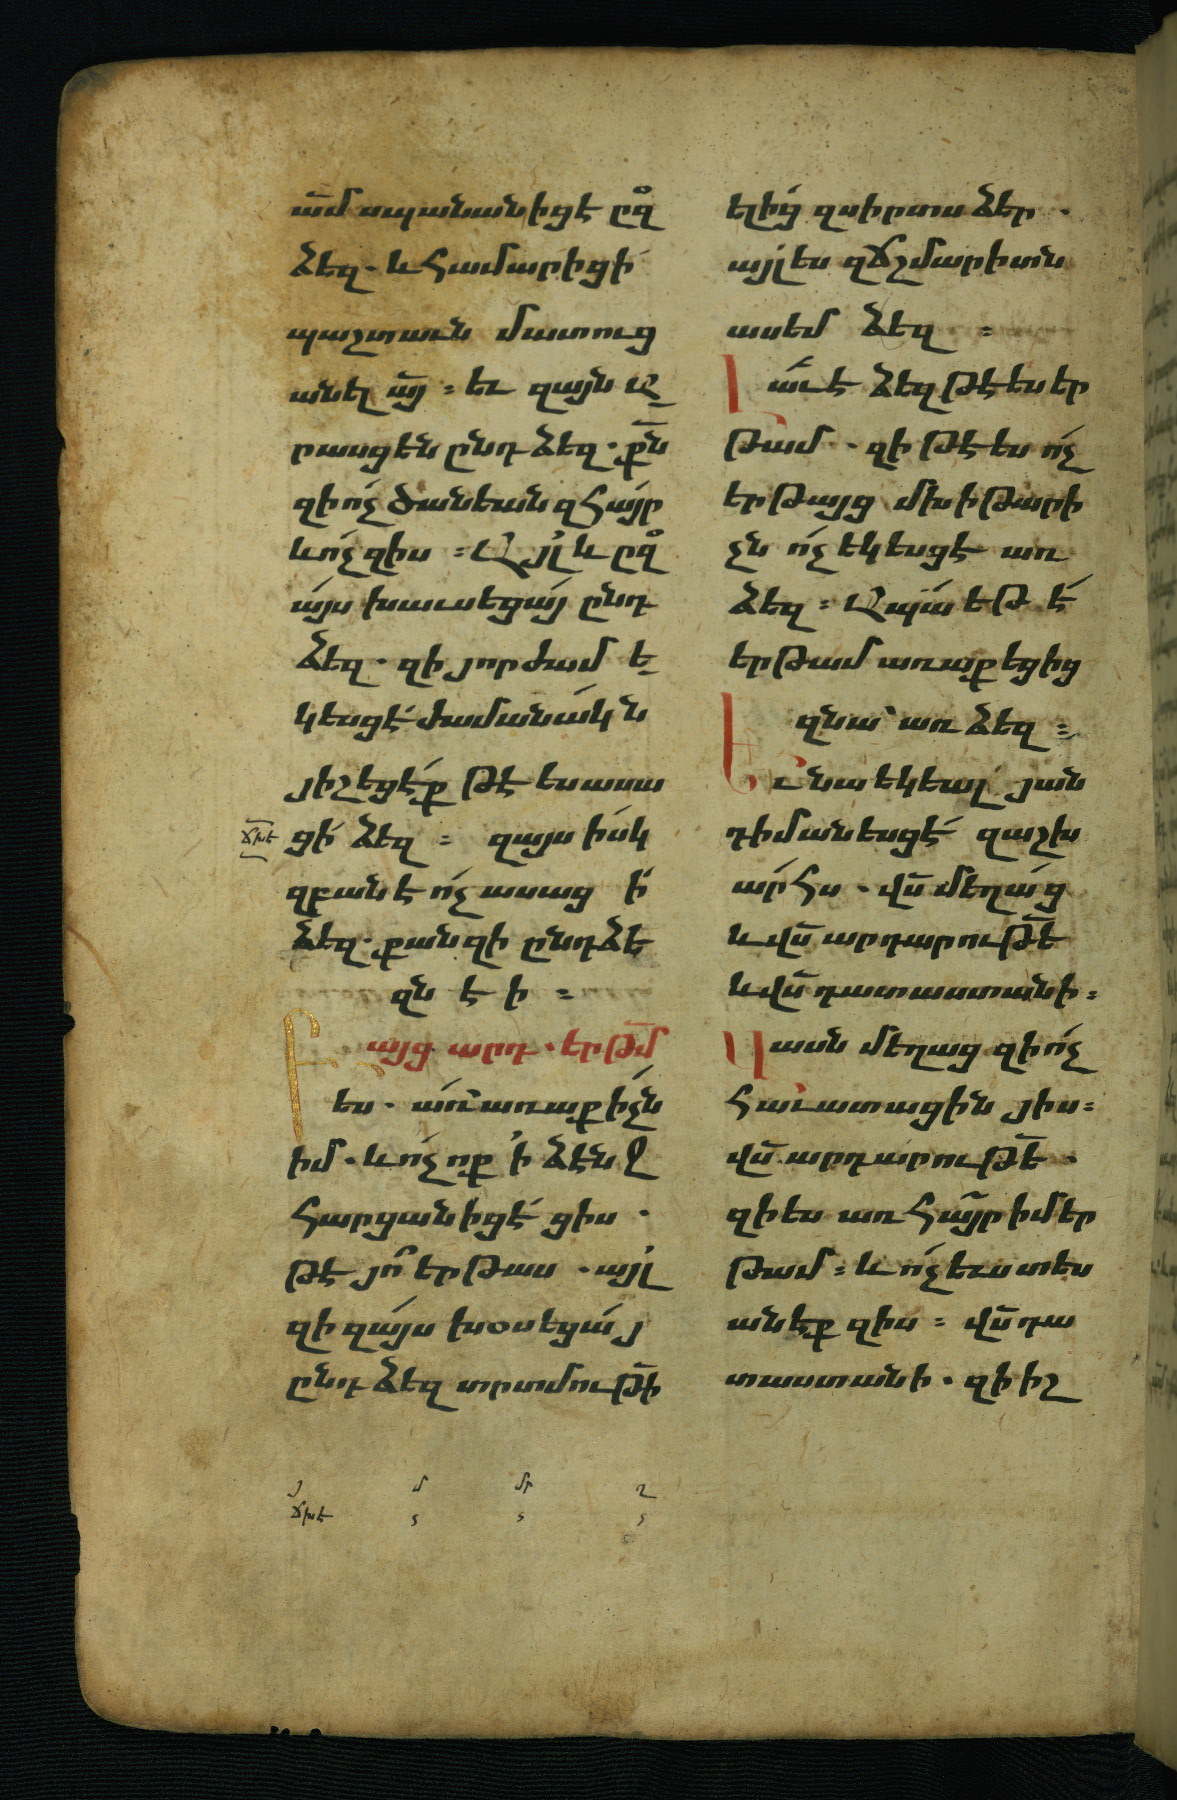 ա՟մ սպանանիցէ ըզ՟
ձեզ. և համարիցի
պաշտաւն մատուց
անել ա՟յ : եւ զայն ա
րասցեն ընդ ձեզ. ք՟ն
զի ո՛չ ծանեան զհայր
և ո՛չ զիս : Այլ և ըզ՟
այս խաւսեցայ ընդ
ձեզ. զի յորժամ ե
կեսցէ ժամանակն
յիշեցէք թէ ես ասա
ճխէ
ցի ձեզ : զայս իսկ
զբանէ ո՛չ ասաց ի
ձեզ. քանզի ընդ ձե
զն էի :
Բայց արդ. երթ՟մ
ես. առ առաքիչն
իմ. և ո՛չ ոք ի ձէնջ
հարցանիցէ ցիս.
թէ յո՞ երթաս. այլ
զի զայս խօսեցայ
ընդ ձեզ տրտմութ՟ի
ելից զսիրտս ձեր.
այլ ես զճշմարիտն
ասեմ ձեզ :
Լաւ է ձեզ թէ ես եր
թամ. զի թէ ես ո՛չ
երթայց մխիթարի
չն ո՛չ եկեսցէ առ
ձեզ : Ապա եթէ
երթամ առաքեցից
զնա առ ձեզ :
Եւ նա եկեալ յան
դիմանեսցէ զաշխ
արհս. վ՟ս մեղաց
և վ՟ս արդարութ՟ե
և վ՟ս դատաստանի :
Վասն մեղաց զի ո՛չ
հաւատացին յիս :
վ՟ս արդարութ՟ե.
զի ես առ հայր իմ եր
թամ : և ո՛չ ևս տես
անէք զիս : վ՟ս դա
տաստանի. զի իշ
յ մ մր ղ
ճխէ